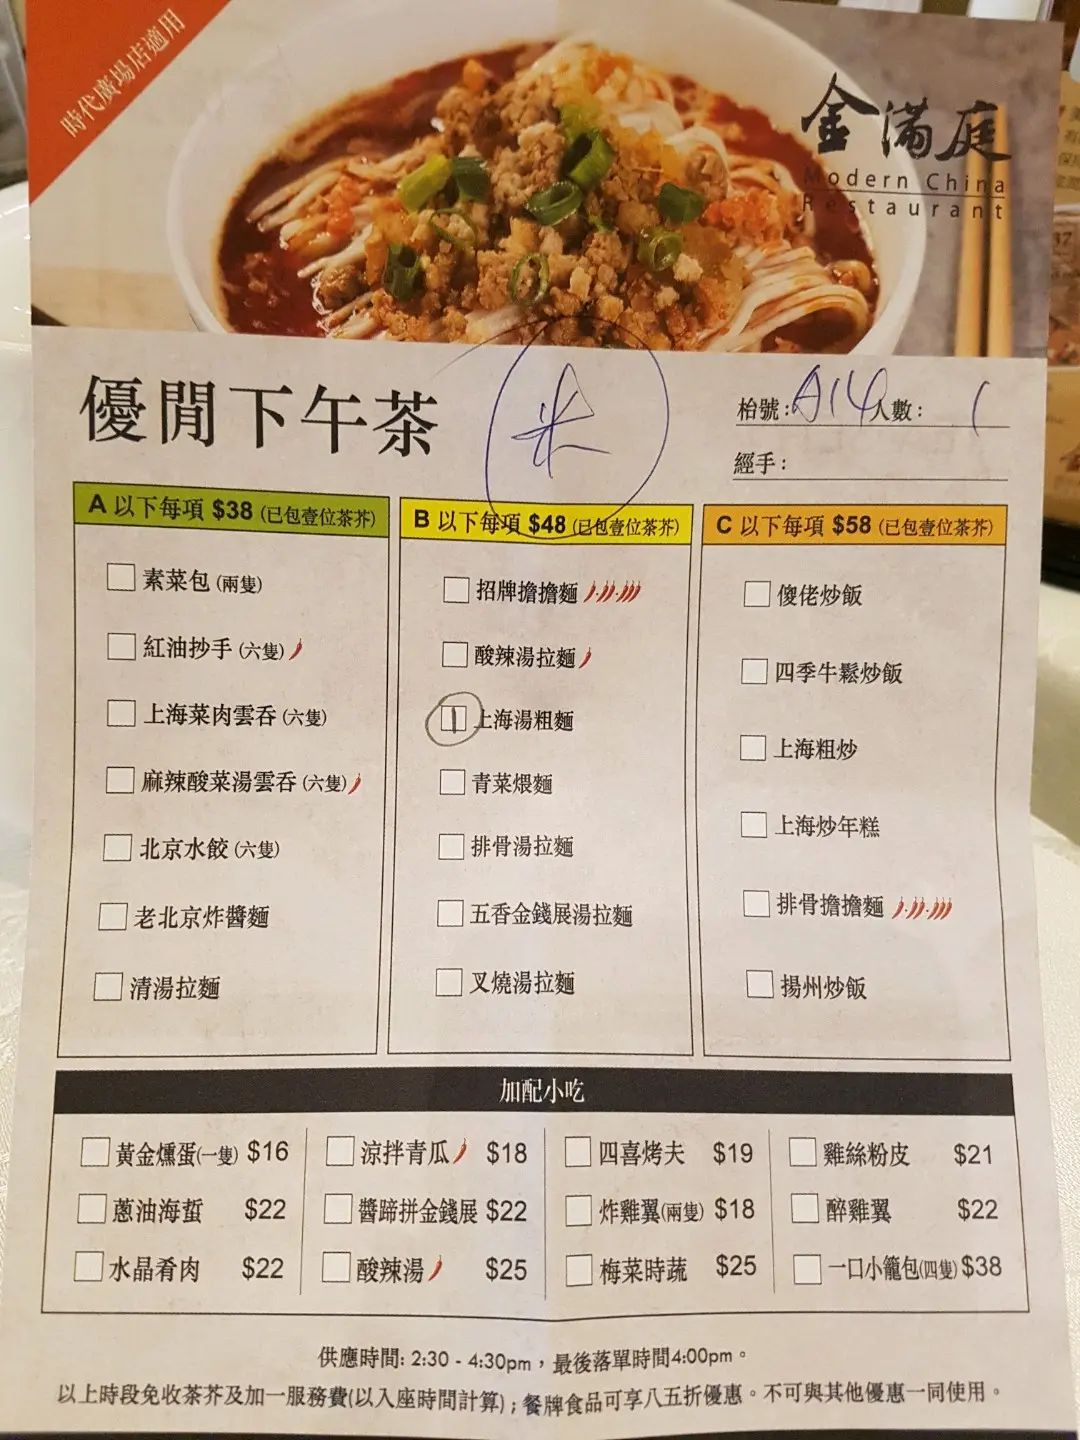 時代廣場店適用
金滿庭
Modern China
Restaurant
優閒下午茶
枱號: A14 人數: 1
經手:
A 以下每項 $38 (已包壹位茶芥)
素菜包 (兩隻)
紅油抄手 (六隻)
上海菜肉雲呑 (六隻)
麻辣酸菜湯雲呑 (六隻)
北京水餃 (六隻)
老北京炸醬麵
清湯拉麵
B 以下每項 $48 (已包壹位茶芥)
招牌擔擔麵
酸辣湯拉麵
1 上海湯粗麵
青菜煨麵
排骨湯拉麵
五香金錢展湯拉麵
叉燒湯拉麵
C 以下每項 $58 (已包壹位茶芥)
傻佬炒飯
四季牛鬆炒飯
上海粗炒
上海炒年糕
排骨擔擔麵
揚州炒飯
加配小吃
黃金燻蛋(一隻) $16
蔥油海蜇 $22
水晶肴肉 $22
涼拌青瓜 $18
醬蹄拼金錢展 $22
酸辣湯 $25
四喜烤夫 $19
炸雞翼(兩隻) $18
梅菜時蔬 $25
雞絲粉皮 $21
醉雞翼 $22
一口小籠包(四隻) $38
供應時間: 2:30 - 4:30pm，最後落單時間4:00pm。
以上時段免收茶芥及加一服務費(以入座時間計算)；餐牌食品可享八五折優惠。不可與其他優惠一同使用。